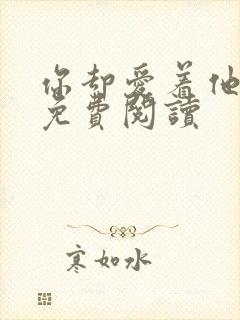 你却爱着他
免費閱讀
寒如水